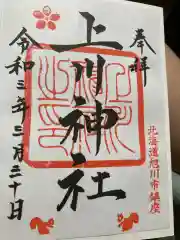 奉拝
上川神社
令和三年三月三十日
北海道旭川市鎮座